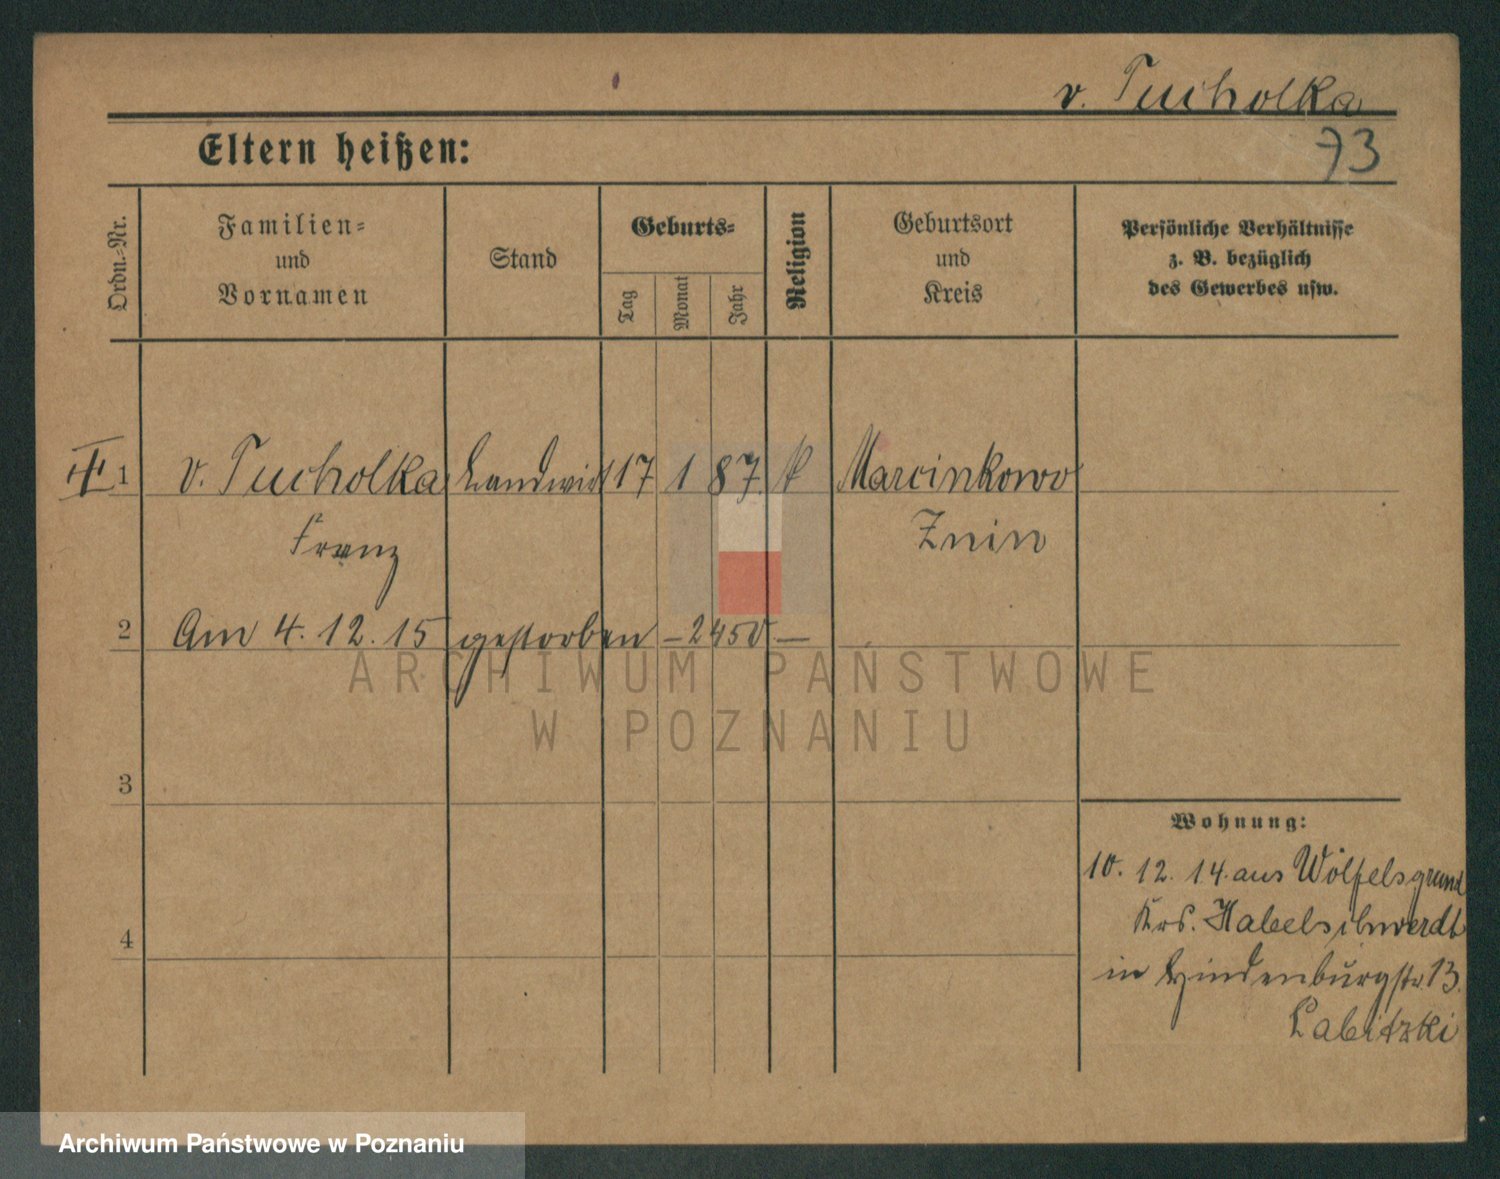 v. Tucholka
Eltern heißen:
73
Ordn.=Nr.
Familien=
und
Vornamen
Stand
Geburts=
Tag
Monat
Jahr
Religion
Geburtsort
und
Kreis
Persönliche Verhältnisse
z. B. bezüglich
des Gewerbes usw.
1 v. Tucholka Landwirt 17 1 87. k Marcinkowo
Franz Znin
2 Am 4. 12. 15 gestorben – 2450 –
ARCHIWUM PAŃSTWOWE
W POZNANIU
3
Wohnung:
10. 12. 14. aus Wölfelsgrund
Krs. Habelschwerdt
4
in Hindenburgstr. 13.
Labitzki
Archiwum Państwowe w Poznaniu